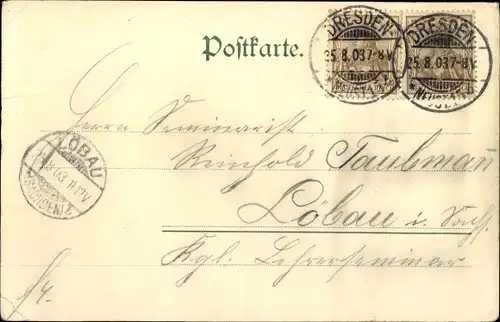 Postkarte.
DRESDEN-
25.8.03 7-8V
* NEUST.
DRESDEN-
25.8.03 7-8V
* NEUST.
LÖBAU
8.03 11-12V
(SACHSEN)
Herrn Seminarist
Reinhold Taubmann
Löbau i. Sachs.
Kgl. Lehrerseminar